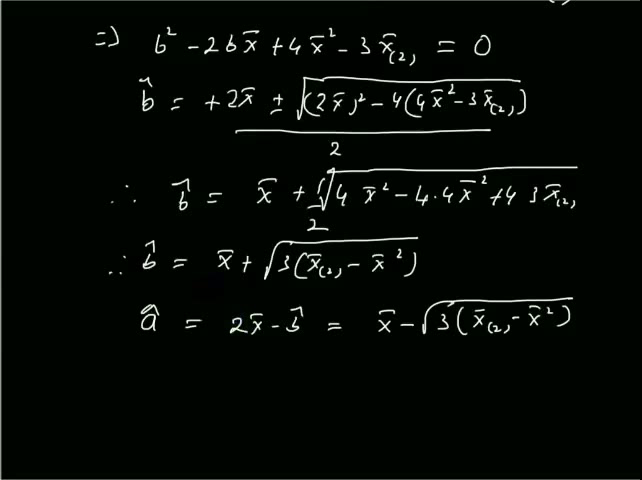 ⇒ b² - 2bx̄ + 4x̄² - 3x̄₍₂₎ = 0
b̂ = +2x̄ ± √((2x̄)² - 4(4x̄² - 3x̄₍₂₎)) / 2
∴ b̂ = x̄ + ½√(4x̄² - 4·4x̄² + 4 3x̄₍₂₎)
∴ b̂ = x̄ + √(3(x̄₍₂₎ - x̄²))
â = 2x̄ - b̂ = x̄ - √(3(x̄₍₂₎ - x̄²))